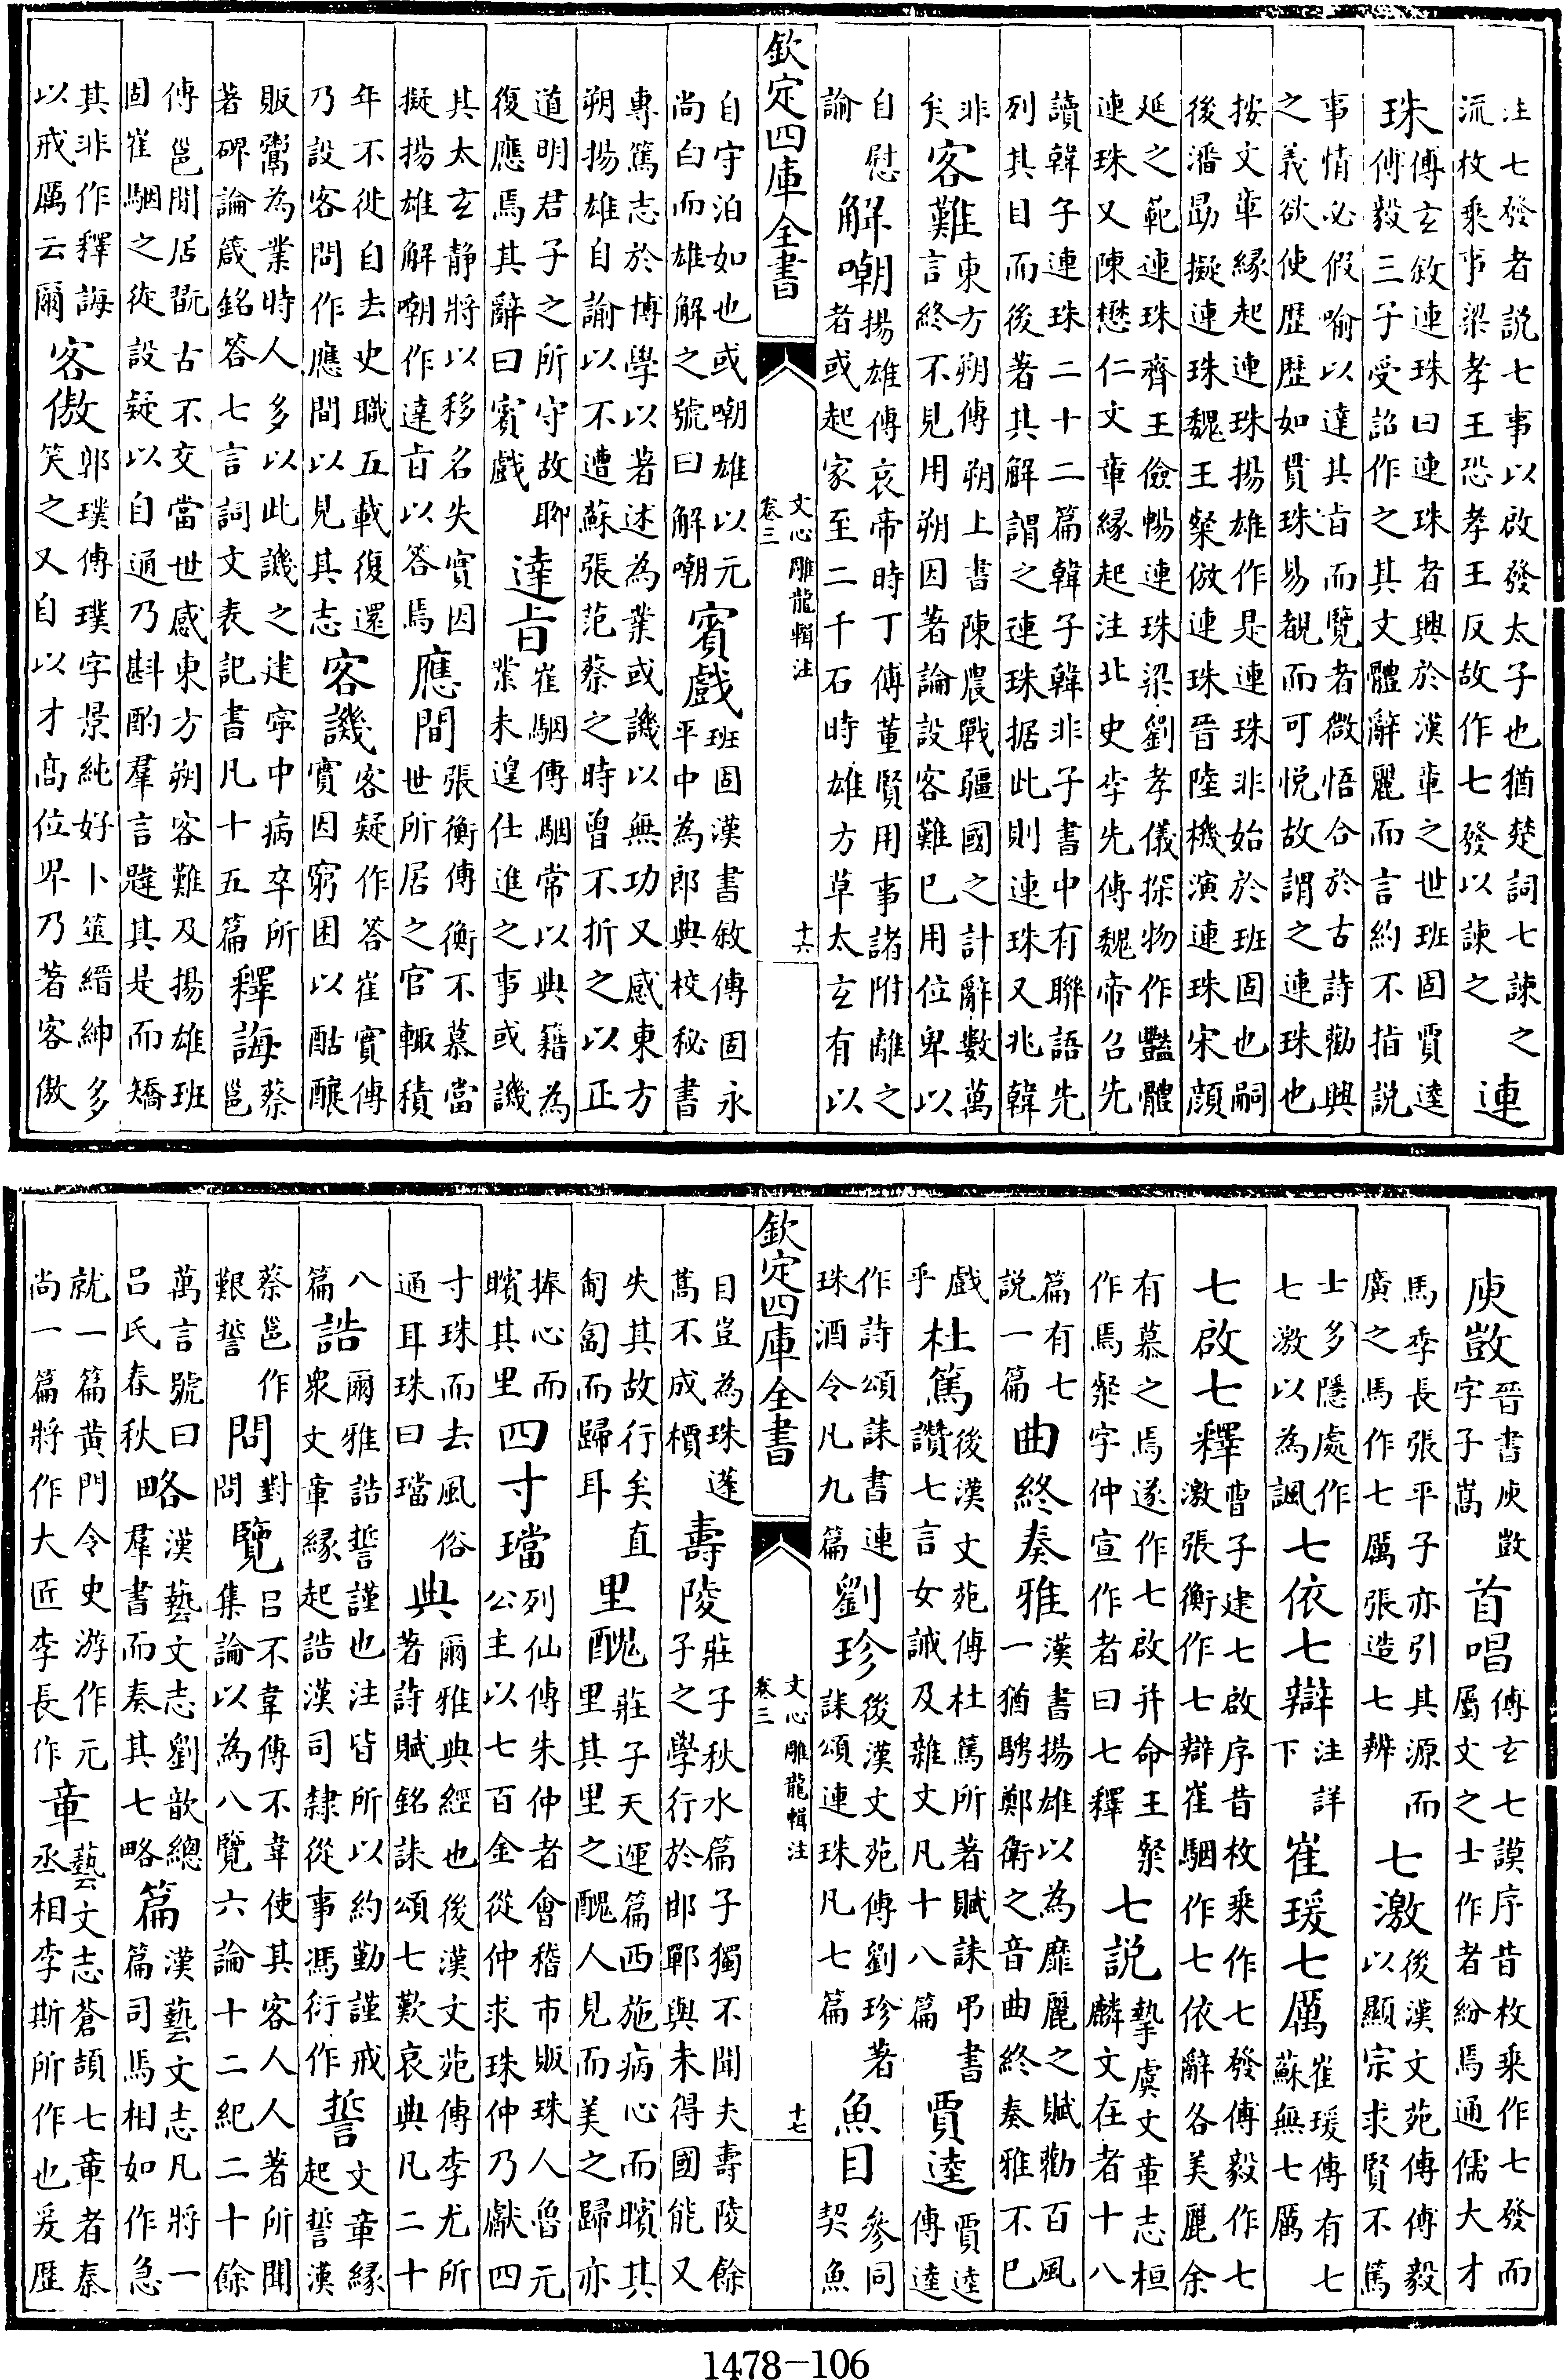 注七發者説七事以啟發太子也猶楚詞七諫之
流枚乘事梁孝王恐孝王反故作七發以諫之 連
珠 傅玄敘連珠曰連珠者興於漢章之世班固賈逵
傅毅三子受詔作之其文體辭麗而言約不指説
事情必假喻以達其㫖而覽者微悟合於古詩勸興
之義欲使歴歴如貫珠易覩而可悦故謂之連珠也
按文章緣起連珠揚雄作是連珠非始於班固也嗣
後潘勗擬連珠魏王粲倣連珠晉陸機演連珠宋顔
延之範連珠齊王儉暢連珠梁劉孝儀探物作豔體
連珠又陳懋仁文章緣起注北史李先傳魏帝召先
讀韓子連珠二十二篇韓子韓非子書中有聯語先
列其目而後著其解謂之連珠据此則連珠又兆韓
非矣 客難 東方朔傳朔上書陳農戰疆國之計辭數萬
言終不見用朔因著論設客難已用位卑以
自慰諭 解嘲 揚雄傳哀帝時丁傅董賢用事諸附離之
者或起家至二千石時雄方草太玄有以
欽定四庫全書 文心雕龍輯注 卷三 十六
自守泊如也或嘲雄以元
尚白而雄解之號曰解嘲 賓戲 班固漢書敘傳固永
平中為郎典校秘書
專篤志於博學以著述為業或譏以無功又感東方
朔揚雄自諭以不遭蘇張范蔡之時曾不折之以正
道明君子之所守故聊
復應焉其辭曰賓戲 達㫖 崔駰傳駰常以典籍為
業未遑仕進之事或譏
其太玄静將以移名失實因
擬揚雄解嘲作達㫖以答焉 應間 張衡傳衡不慕當
世所居之官輒積
年不徙自去史職五載復還
乃設客問作應間以見其志 客譏 客疑作答崔實傳
實因窮困以酤釀
販鬻為業時人多以此譏之建寧中病卒所
著碑論箴銘答七言詞文表記書凡十五篇 釋誨 蔡邕
傳邕閒居翫古不交當世感東方朔客難及揚雄班
固崔駰之徒設疑以自通乃斟酌羣言韙其是而矯
其非作釋誨
以戒厲云爾 客傲 郭璞傳璞字景純好卜筮縉紳多
笑之又自以才髙位卑乃著客傲
庾敳 晉書庾敳
字子嵩 首唱 傅玄七謨序昔枚乘作七發而
屬文之士作者紛焉通儒大才
馬季長張平子亦引其源而
廣之馬作七厲張造七辨 七激 後漢文苑傳傅毅
以顯宗求賢不篤
士多隱處作
七激以為諷 七依七辯 注詳
下 崔瑗七厲 崔瑗傳有七
蘇無七厲
七啟七釋 曹子建七啟序昔枚乘作七發傅毅作七
激張衡作七辯崔駰作七依辭各美麗余
有慕之焉遂作七啟并命王粲
作焉粲字仲宣作者曰七釋 七説 摯虞文章志桓
麟文在者十八
篇有七
説一篇 曲終奏雅 漢書揚雄以為靡麗之賦勸百風
一猶騁鄭衛之音曲終奏雅不已
戲乎 杜篤 後漢文苑傳杜篤所著賦誄弔書
讚七言女誡及雜文凡十八篇 賈逵 賈逵
傳逵
作詩頌誄書連
珠酒令凡九篇 劉珍 後漢文苑傳劉珍著
誄頌連珠凡七篇 魚目 參同
契魚
欽定四庫全書 文心雕龍輯注 卷三 十七
目豈為珠蓬
蒿不成檟 壽陵 莊子秋水篇子獨不聞夫壽陵餘
子之學行於邯鄲與未得國能又
失其故行矣直
匍匐而歸耳 里醜 莊子天運篇西施病心而矉其
里其里之醜人見而美之歸亦
捧心而
矉其里 四寸璫 列仙傳朱仲者會稽市販珠人魯元
公主以七百金從仲求珠仲乃獻四
寸珠而去風俗
通耳珠曰璫 典 爾雅典經也後漢文苑傳李尤所
著詩賦銘誄頌七歎哀典凡二十
八篇 誥 爾雅誥誓謹也注皆所以約勤謹戒
衆文章緣起誥漢司隸從事馮衍作 誓 文章緣
起誓漢
蔡邕作
艱誓 問 對
問 覽 呂不韋傳不韋使其客人人著所聞
集論以為八覽六論十二紀二十餘
萬言號曰
呂氏春秋 略 漢藝文志劉歆總
羣書而奏其七略 篇 漢藝文志凡將一
篇司馬相如作急
就一篇黄門令史游作元
尚一篇將作大匠李長作 章 藝文志蒼頡七章者秦
丞相李斯所作也爰歴
1478-106